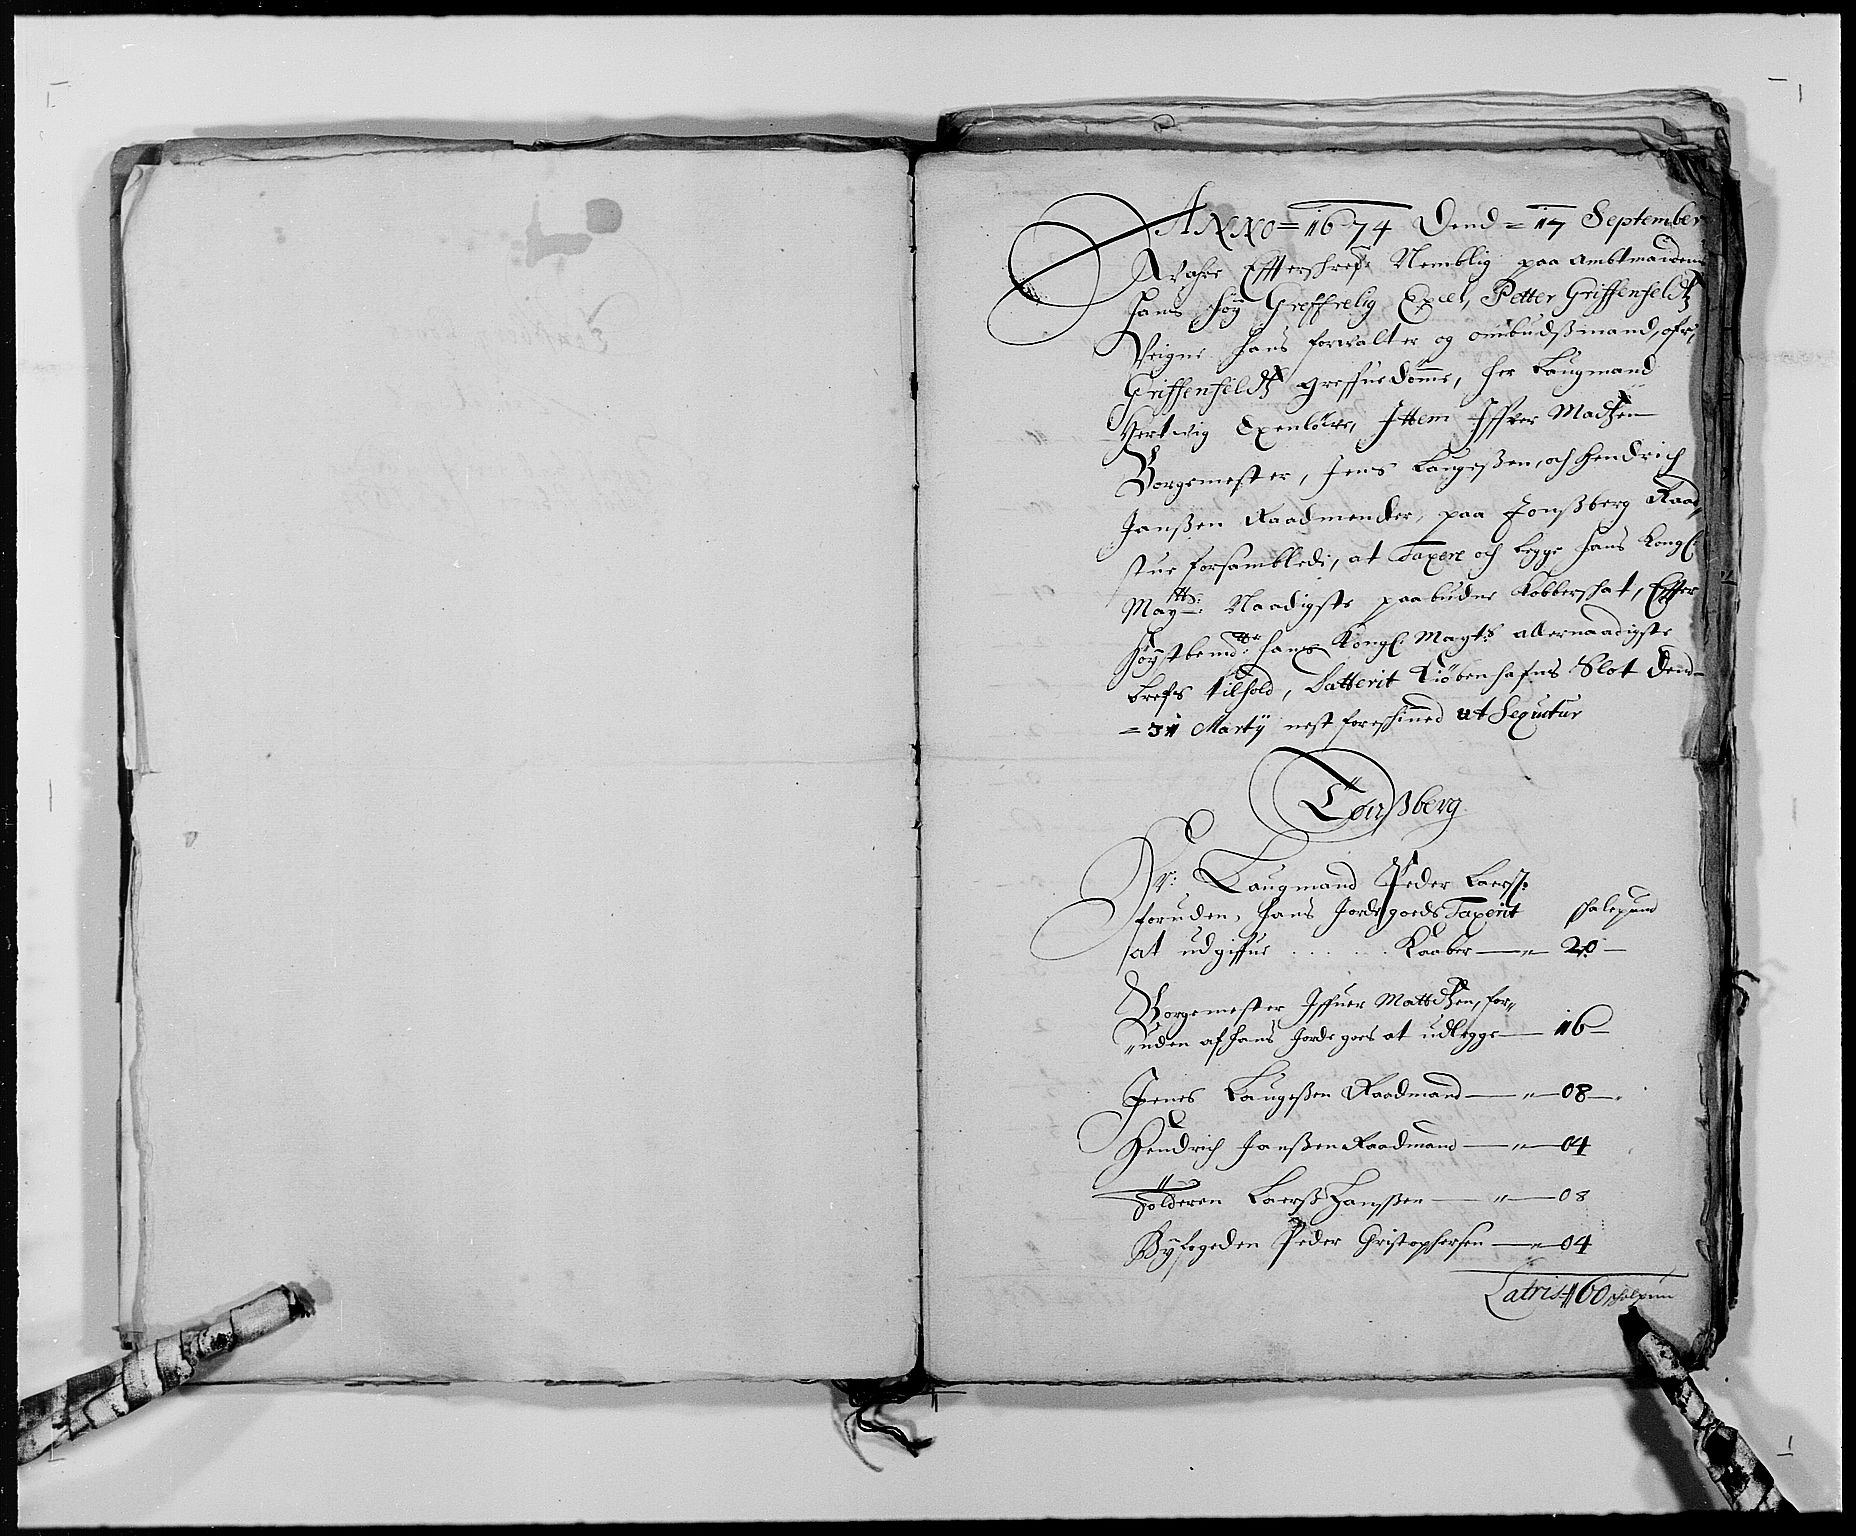 ANNO = 1674 Dend = 17 September
Wahre Effterschrefne Nemblig paa Ambtmandens
hans Høy Greffuelig Excel, Petter Griffenfeldtz
Veigne hans forvalter og ombudßmand ofr,
Griffenfeldtz greffuedømme, her Laugmand
Hertvig Ixenlöwe, Ittem Iffver Madtzen
Borgemester, Jens Laugeßen, och Hendrich
Janßen Raadmender, paa Tonßberg Raad,
stue forsamblede, at Taxere och legge hans Kongl:
Mayttß: Naadigste paabudne Kobberschat, Effter
Høystbemdte: hans Kongl: Maytß allernaadigste
brefs tilhold, Datterit Kiøbenhafns Slot Dend
= 31 Marty nest foreschined ut Sequtur
Tönßberg
Sr: Laugmand Peder Laerß:
foruden, hans Jordegoeds Taxerit schalepund
at udgiffue . . . . . Kaaber — „ — 20 —
Borgemester Iffuer Mattdtzen, for„
„uden af hans Jordegoes at udlegge — 16 —
Jenes Laugeßen Raadmand — „ — 08 —
Hendrich Janßen Raadmand — „ — 04
Tolderen Laerß Hanßen — „ — 08
Byfogeden Peder Christophersen — „ — 04
Latris 60 schalpun